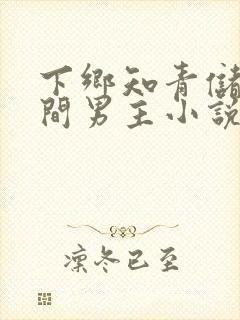 下鄉知青儲
間男主小說
凜冬已至